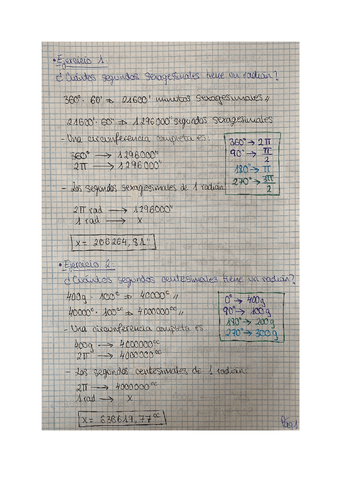 • Ejercicio 1
¿Cuántos segundos sexagesimales tiene un radián?
360° · 60' ⇒ 21600' minutos sexagesimales //
21600' · 60 ⇒ 1296000'' segundos sexagesimales
- Una circunferencia completa es:
360° → 1296000''
2π → 1296000''
360° → 2π
90° → π/2
180° → π
270° → 3π/2
- Los segundos sexagesimales de 1 radián
2π rad → 1296000''
1 rad → x
x = 206264,81''
• Ejercicio 2
¿Cuántos segundos centesimales tiene un radián?
400g · 100ᶜ ⇒ 40000ᶜ //
40000ᶜ · 100ᶜᶜ ⇒ 4000000ᶜᶜ //
- Una circunferencia completa es
400g → 4000000ᶜᶜ
2π → 4000000ᶜᶜ
0° → 400g
90° → 100g
180° → 200g
270° → 300g
- Los segundos centesimales de 1 radián
2π → 4000000ᶜᶜ
1 rad → x
x = 636619,77ᶜᶜ
Pág 1